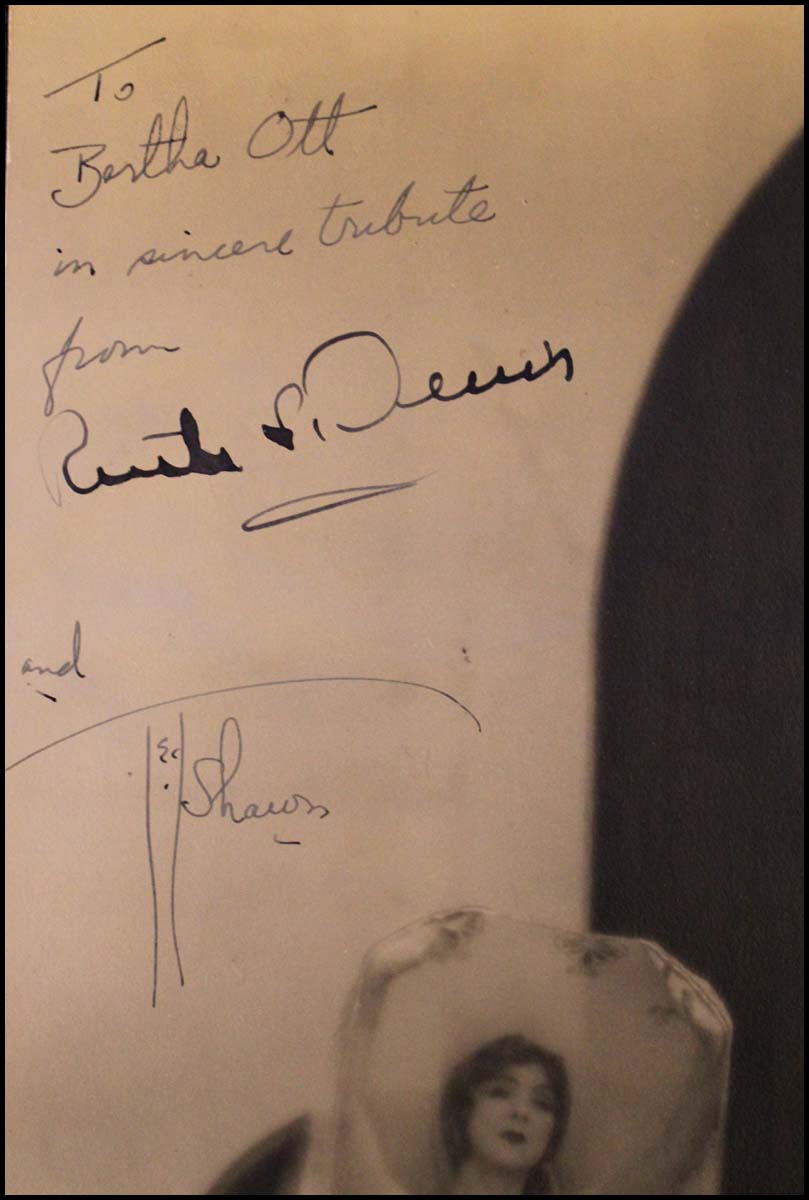 To
Bertha Ott
in sincere tribute
from
Ruth St. Denis
and
Ted Shawn